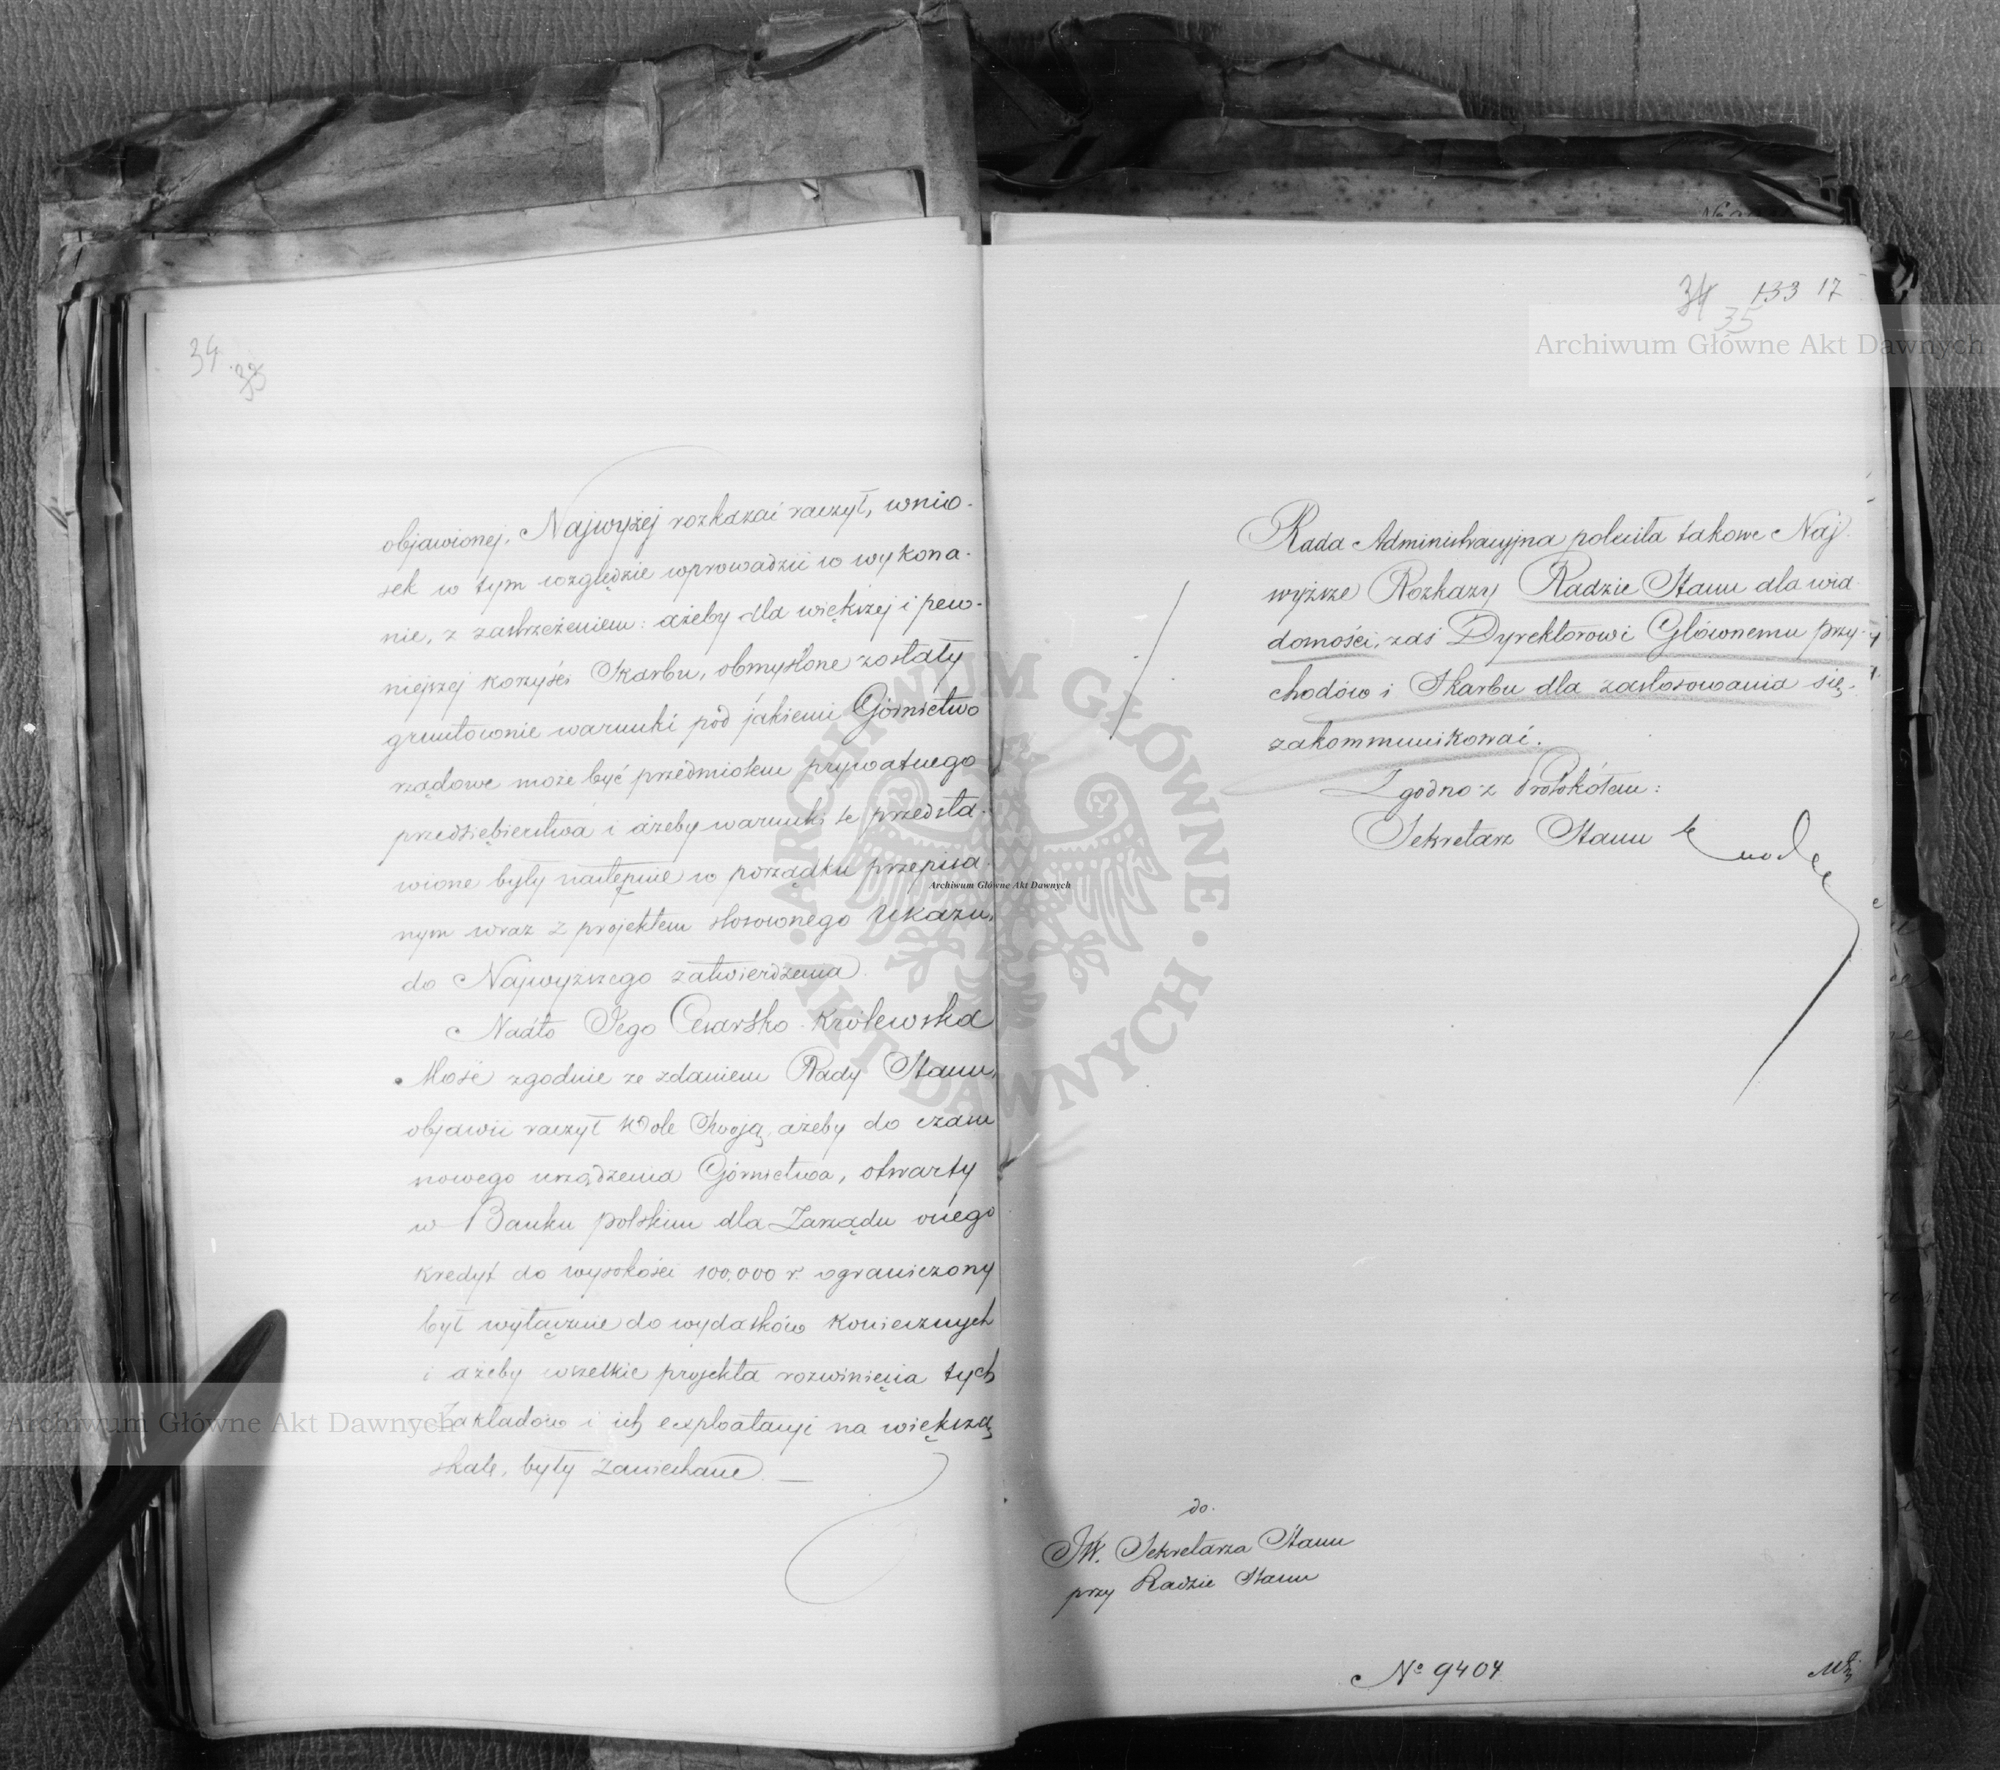 34
33
objawionej, Najwyżej rozkazać raczył, wnio-
sek w tym względzie wprowadzić w wykona-
nie, z zastrzeżeniem: ażeby dla większej i pew-
niejszej korzyści Skarbu, obmyślone zostały
gruntownie warunki pod jakiemi Górnictwo
rządowe może być przedmiotem prywatnego
przedsiębierstwa i ażeby warunki te przedsta-
wione były następnie w porządku przepisa-
nym wraz z projektem stosownego Ukazu,
do Najwyższego zatwierdzenia.
Nadto Jego Cesarsko-Królewska
Mość zgodnie ze zdaniem Rady Stanu,
objawić raczył Wolę Swoją, ażeby do czasu
nowego urządzenia Górnictwa, otwarty
w Banku polskim dla Zarządu onego
kredyt do wysokości 100,000 r. ograniczony
był wyłącznie do wydatków koniecznych
i ażeby wszelkie projekta rozwinięcia tych
Zakładów i ich exploatacyi na większą
skalę, były zaniechane. —
34 133 17
35
Rada Administracyjna poleciła takowe Naj-
wyższe Rozkazy Radzie Stanu dla wia-
domości, zaś Dyrektorowi Głównemu przy-
chodów i Skarbu dla zastosowania się,
zakommunikować.
Zgodno z Protokółem:
Sekretarz Stanu
do.
JW. Sekretarza Stanu
przy Radzie Stanu
No 9404
Archiwum Główne Akt Dawnych
Archiwum Główne Akt Dawnych
Archiwum Główne Akt Dawnych
ARCHIWUM GŁÓWNE · AKT DAWNYCH ·